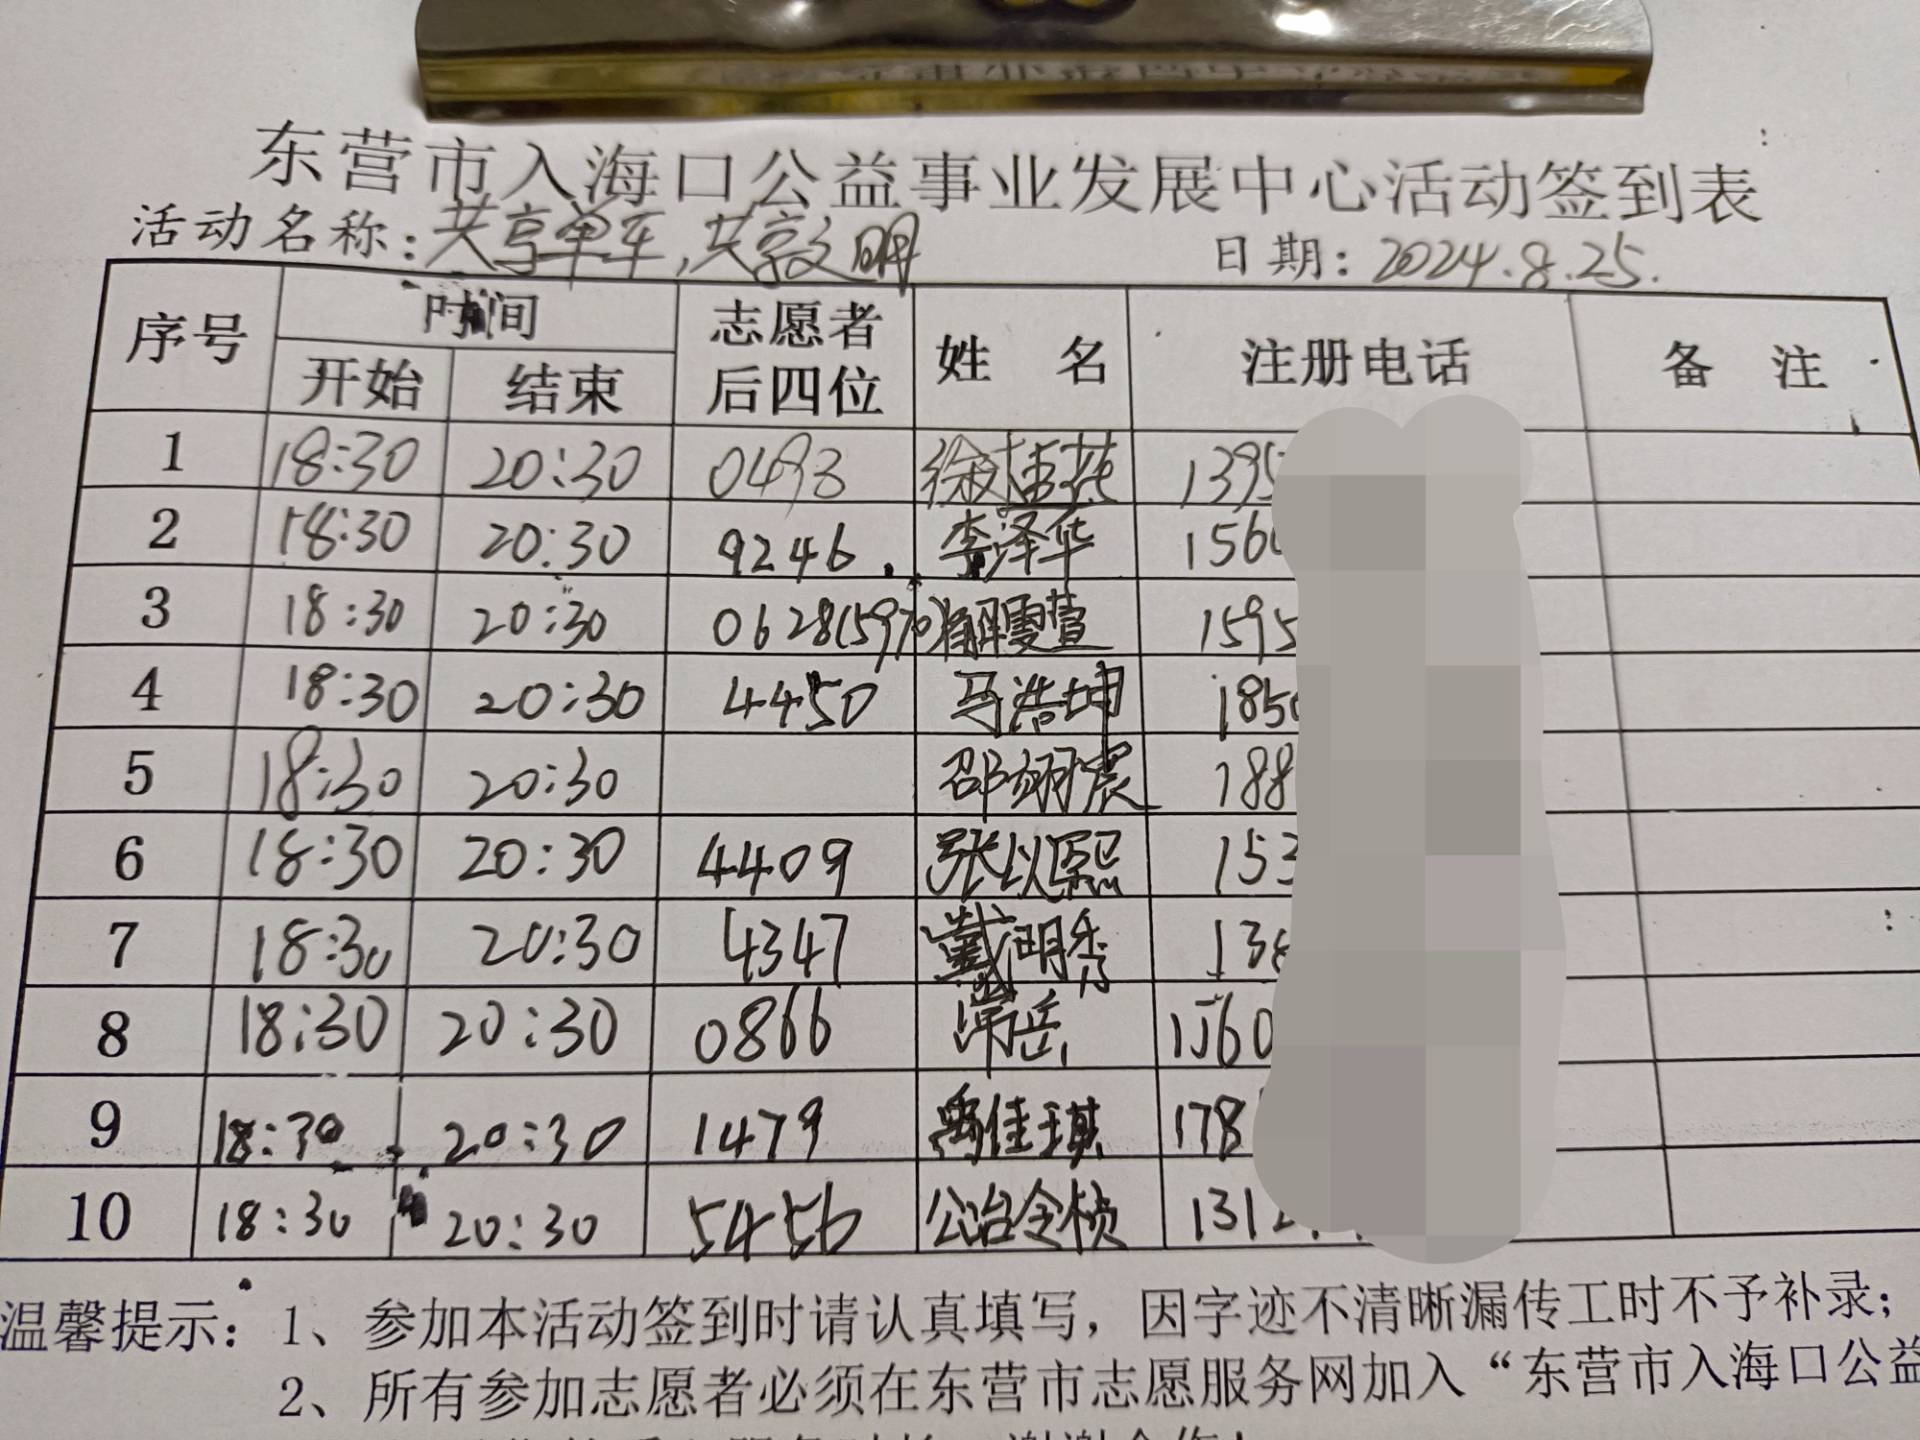 东营市入海口公益事业发展中心活动签到表
活动名称：共享单车，共享文明 日期：2024.8.25.
序号 时间 志愿者后四位 姓名 注册电话 备注
开始 结束
1 18:30 20:30 0493 徐 燕 1395
2 18:30 20:30 9246 李泽华 156
3 18:30 20:30 0628(5970) 雯萱 1595
4 18:30 20:30 4450 马浩坤 185
5 18:30 20:30 邵翊宸 188
6 18:30 20:30 4409 张以熙 153
7 18:30 20:30 4347 戴明秀 13
8 18:30 20:30 0866 岳 1560
9 18:30 20:30 1479 禹佳琪 178
10 18:30 20:30 5456 公冶令桢 131
温馨提示：1、参加本活动签到时请认真填写，因字迹不清晰漏传工时不予补录；
2、所有参加志愿者必须在东营市志愿服务网加入“东营市入海口公益